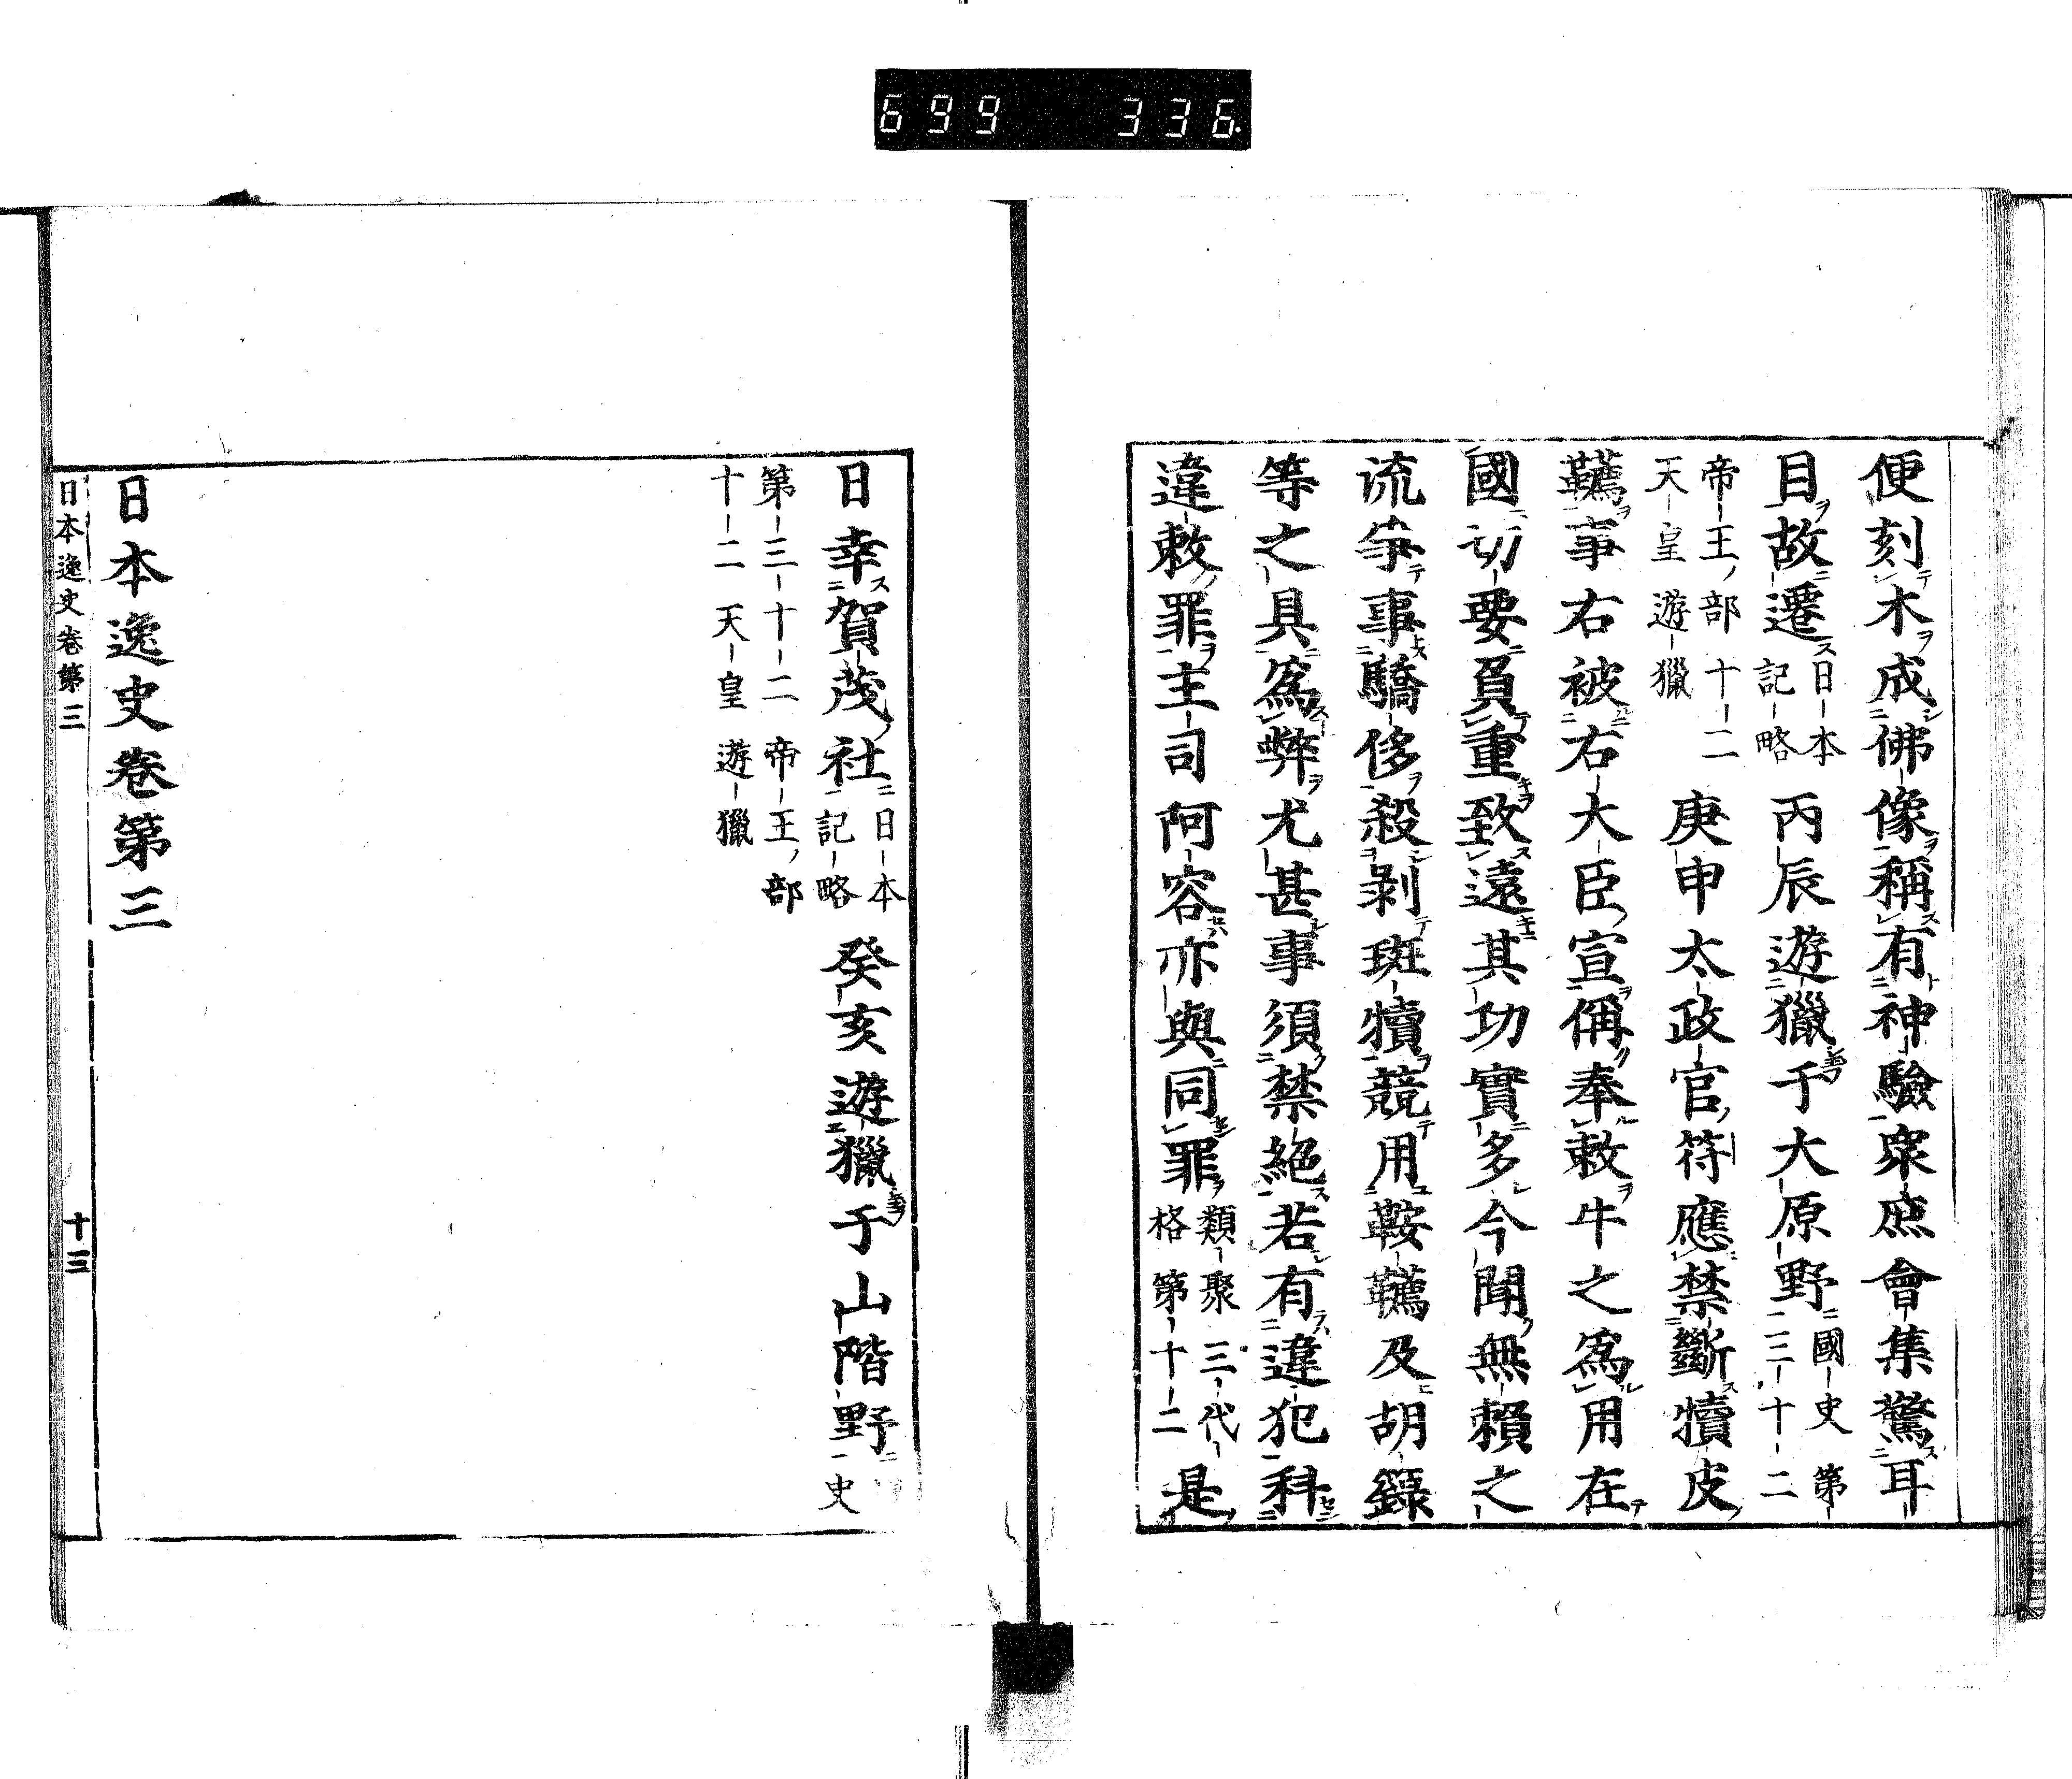 699 336
便刻木成佛像稱有神驗衆庶會集驚耳
目故遷日本記略丙辰遊獵于大原野國史第三十二
帝王部十二天皇遊獵庚申太政官符應禁斷犢皮
韉事右被右大臣宣偁奉敕牛之爲用在
國切要負重致遠其功實多今聞無賴之
流爭事驕侈殺剥斑犢競用鞍韉及胡籙
等之具爲弊尤甚事須禁絕若有違犯科
違敕罪主司阿容亦與同罪類聚三代格第十二是
日幸賀茂社日本記略癸亥遊獵于山階野史
第三十二帝王部十二天皇遊獵
日本逸史卷第三
日本逸史卷第三 十三